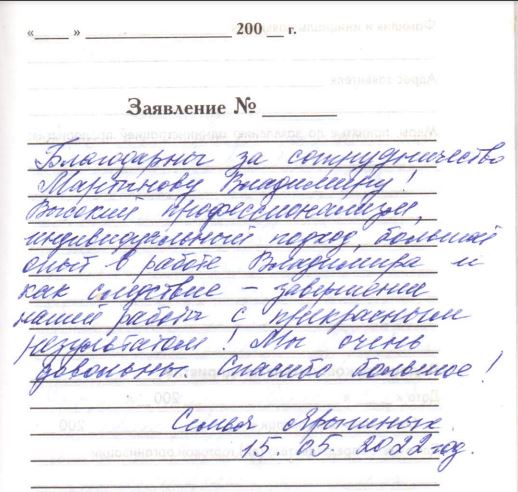 «____» ____________ 200__ г.
Заявление № ______
Благодарны за сотрудничество
Мартынову Владимиру!
Высокий профессионализм,
индивидуальный подход, большой
опыт в работе Владимира и
как следствие – завершение
нашей работы с прекрасным
результатом! Мы очень
довольны. Спасибо большое!
Семья
15.05.2022 год.